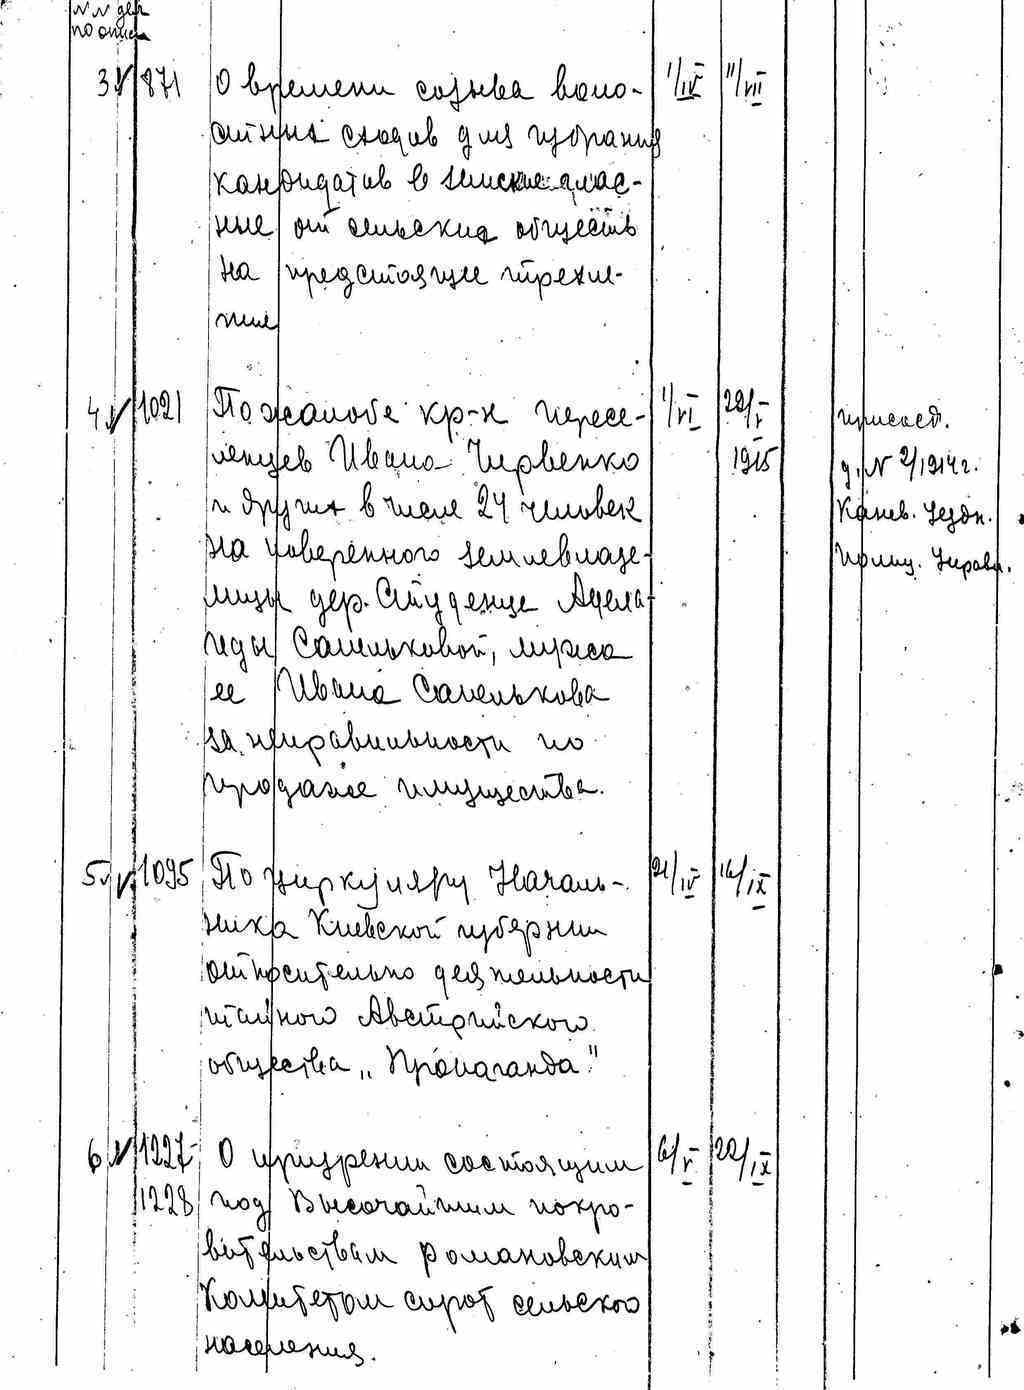 N N дел
по описи
3 871 О времени созыва воло- 1/IV 11/VII
стных сходов для избрания
кандидатов в земские глас-
ные от сельских обществ
на предстоящее трехле-
тие
4 1021 По жалобе кр-н пересе- 1/VI 22/V
ленцев Ивана Червенко 1915
и других в числе 24 человек
на поверенного землевладе-
лицы дер. Студенце Адела-
иды Савельковой, мужа
ее Ивана Савелькова
за неправильности по
продаже имущества.
присоед.
д. N 2/1914 г.
Канев. Уездн.
Полиц. Управл.
5 1095 По циркуляру Началь- 21/IV 16/IX
ника Киевской губернии
относительно деятельности
тайного Австрийского
общества „Пропаганда"
6 1227- О призрении состоящим 6/V 22/IX
1228 под Высочайшим покро-
вительствам Романовским
Комитетом сирот сельского
населения.